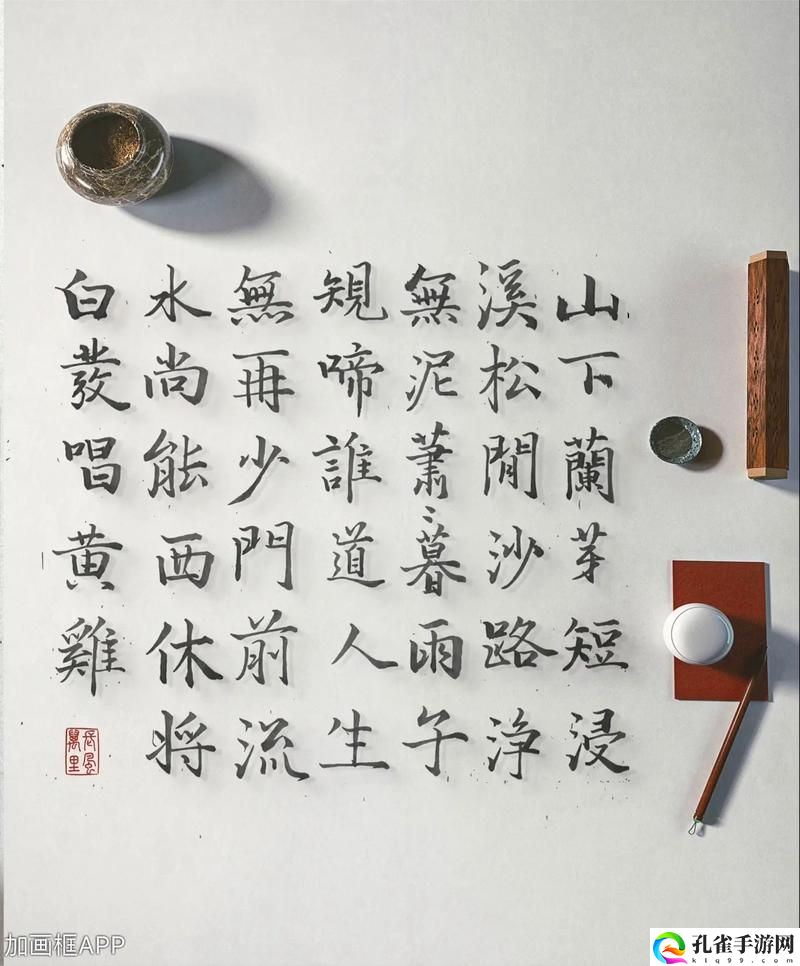 山下蘭芽短浸
溪松閒沙路淨
無泥蕭〻暮雨子
䂓啼誰道人生
無再少門前流
水尚能西休將
白發唱黄雞
長風萬里
加画框APP
孔雀手游网
ktq99.com